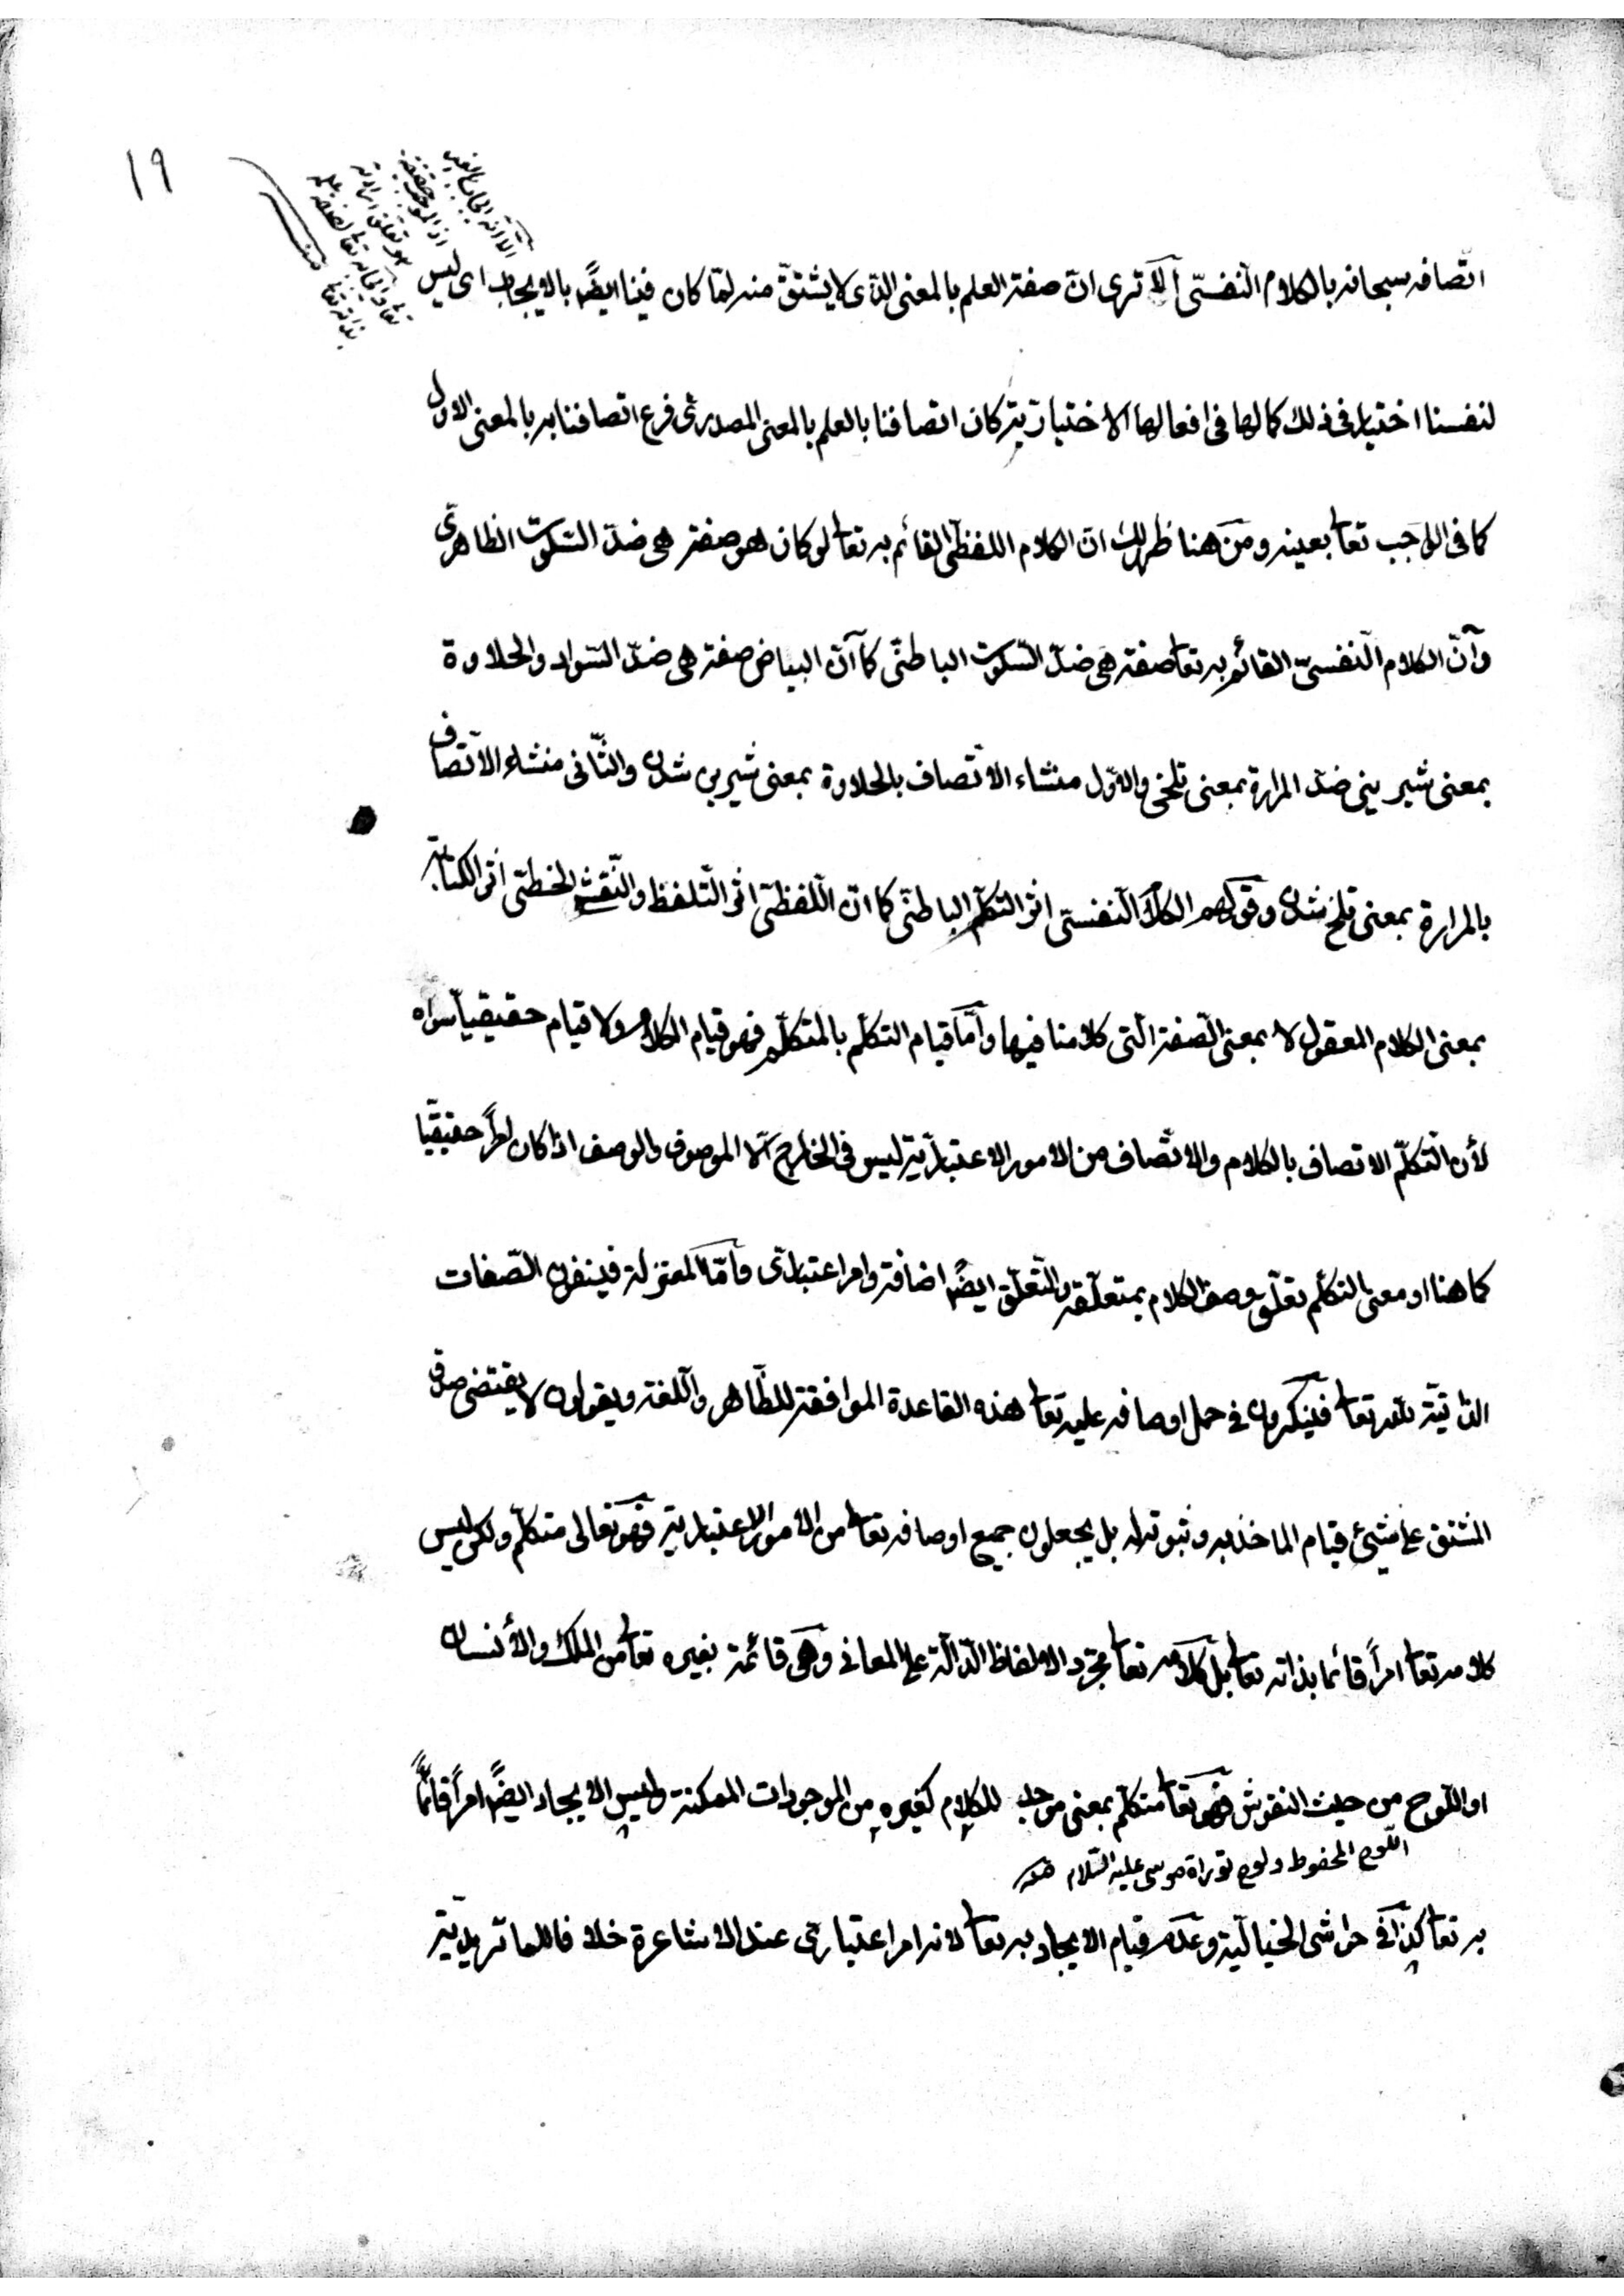 ١٩
الّا انّه ايجاب الغير
اذ الموجب حقيقة
هو تعلق ارادته
تعالى
اتّصافه سبحانه بالكلام النّفسىّ ألا ترى انّ صفة العلم بالمعنى الّذى لا يشتقّ منه لمّا كان فينا ايضًا بالايجاب اى ليس
لنفسنا اختيار فى ذلك كما لها فى افعالها الاختياريّة كان اتصافنا بالعلم بالمعنى المصدرىّ فرع اتصافنا به بالمعنى الاول
كما فى الواجب تعا بعينه ومن هنا ظهر لك انّ الكلام اللفظىّ القائم به تعا لو كان هو صفة هى ضدّ السّكوت الظاهرىّ
وأنّ الكلام النّفسىّ القائم به تعا صفة هى ضدّ السّكوت الباطنّى كما أنّ البياض صفة هى ضدّ السّواد والحلاوة
بمعنى شيرينى ضدّ المرارة بمعنى تلخى والاوّل منشاء الاتّصاف بالحلاوة بمعنى شيرين شدن والثّانى منشاء الاتّصاف
بالمرارة بمعنى تلخ شدن وقولهم الكلام النّفسىّ اثر التكلّم الباطنّى كما انّ اللّفظىّ اثر التّلفظ والنّقش الخطّى أثر الكتابة
بمعنى الكلام المعقول لا بمعنى الصّفة الّتى كلامنا فيها وأمّا قيام التكلّم بالمتكلّم فهو قيام الكلام ولا قيام حقيقيّا سواه
لأن التّكلّم الاتصاف بالكلام والاتّصاف من الامور الاعتباريّة ليس فى الخارج الّا الموصوف والوصف اذا كان امراً حقيقيّا
كما هنا او معنى التكلّم تعلّق وصف الكلام بمتعلّقه والتّعلّق ايضًا اضافة وامر اعتبارىّ وأمّا المعتزلة فينفون الصّفات
الذّاتيّة للّه تعا فينكرون فى حمل اوصافه عليه تعا هذه القاعدة الموافقة للظّاهر واللّغة ويقولون لا يقتضى صدق
المشتق على شيئ قيام الماخذ به وثبوته له بل يجعلون جميع اوصافه تعا من الامور الاعتبارية فهو تعالى متكلّم ولكن ليس
كلامه تعا امراً قائما بذاته تعا بل كلامه تعا مجرّد الالفاظ الدّالّة على المعانى وهى قائمة بغيره تعا من الملك والأنسان
او اللّوح من حيث النقوش فهو تعا متكلّم بمعنى موجد للكلام كغيره من الموجودات الممكنة وليس الايجاد ايضًا امراً قائمًا
اللّوح المحفوظ ولوح توراة موسى عليه السّلام منه
به تعا كذا فى حواشى الخياليّة وعدم قيام الايجاد به تعا لانه امر اعتبارىّ عند الاشاعرة خلافا للماتريديّة